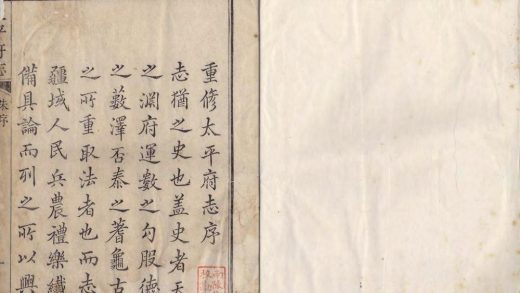 重修太平府志序
志猶之史也蓋史者天
之淵府運數之勾股德
之藪澤否泰之蓍龜古
之所重取法者也而志
疆域人民兵農禮樂纖
備具論而列之所以興
平府志
朱序